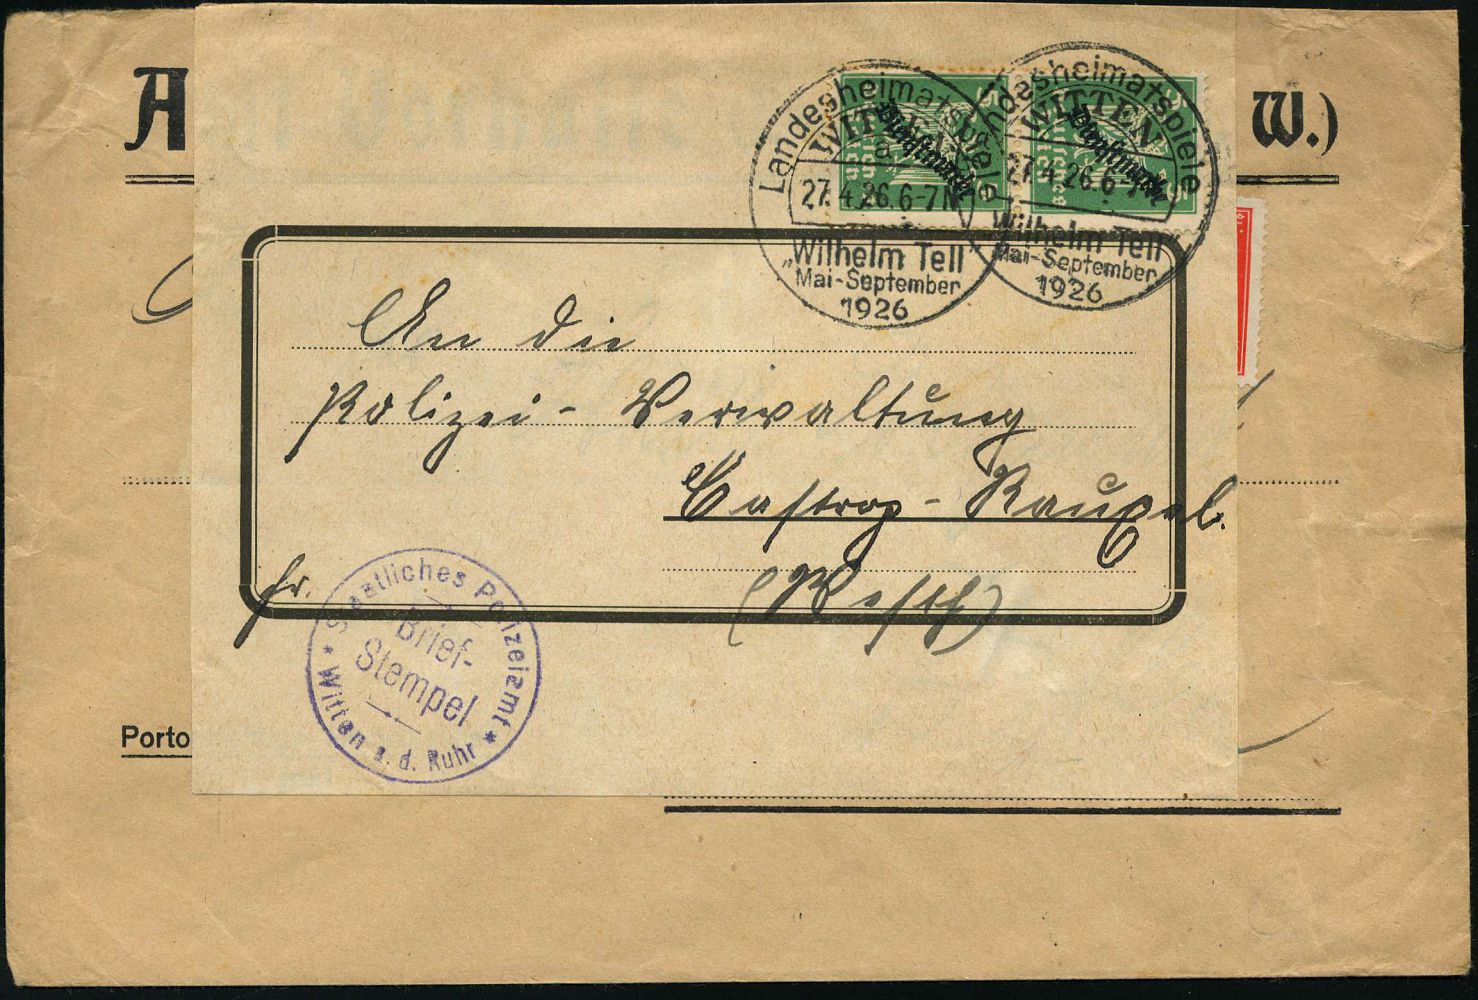 A
W.)
Landesheimatspiele
WITTEN
27.4.26.6-7N
„Wilhelm Tell"
Mai-September
1926
Landesheimatspiele
WITTEN
27.4.26.6-7N
„Wilhelm Tell"
Mai-September
1926
Dienstmarke
Dienstmarke
Deutsches Reich
An die
Polizei-Verwaltung
Castrop-Rauxel.
(Westf)
fr.
Staatliches Polizeiamt
Brief-
Stempel
* Witten a. d. Ruhr *
Porto